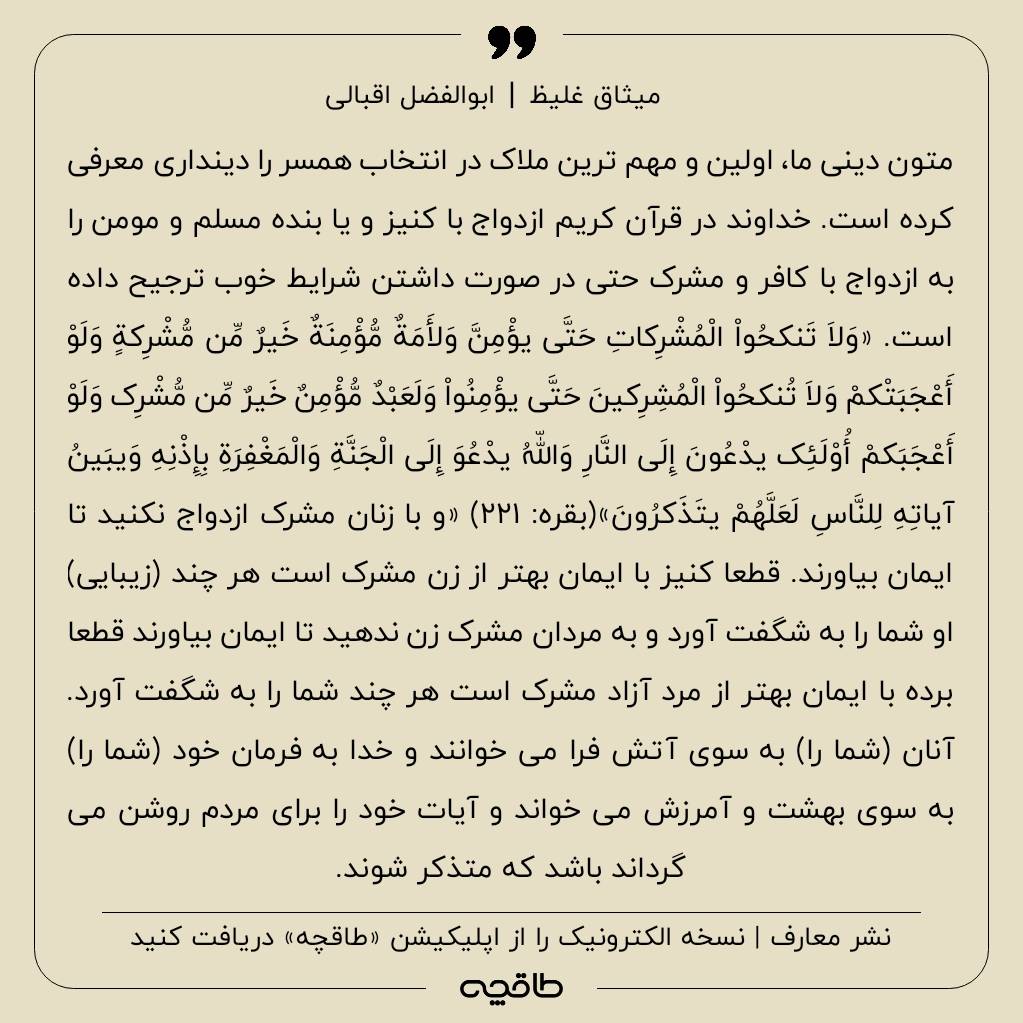 میثاق غلیظ | ابوالفضل اقبالی
متون دینی ما، اولین و مهم ترین ملاک در انتخاب همسر را دینداری معرفی
کرده است. خداوند در قرآن کریم ازدواج با کنیز و یا بنده مسلم و مومن را
به ازدواج با کافر و مشرک حتی در صورت داشتن شرایط خوب ترجیح داده
است. «وَلاَ تَنکحُواْ الْمُشْرِکاتِ حَتَّی یؤْمِنَّ وَلأَمَةٌ مُّؤْمِنَةٌ خَیرٌ مِّن مُّشْرِکةٍ وَلَوْ
أَعْجَبَتْکمْ وَلاَ تُنکحُواْ الْمُشِرِکینَ حَتَّی یؤْمِنُواْ وَلَعَبْدٌ مُّؤْمِنٌ خَیرٌ مِّن مُّشْرِک وَلَوْ
أَعْجَبَکمْ أُوْلَئِک یدْعُونَ إِلَی النَّارِ وَاللّهُ یدْعُوَ إِلَی الْجَنَّةِ وَالْمَغْفِرَةِ بِإِذْنِهِ وَیبَینُ
آیاتِهِ لِلنَّاسِ لَعَلَّهُمْ یتَذَکرُونَ»(بقره: ۲۲۱) «و با زنان مشرک ازدواج نکنید تا
ایمان بیاورند. قطعا کنیز با ایمان بهتر از زن مشرک است هر چند (زیبایی)
او شما را به شگفت آورد و به مردان مشرک زن ندهید تا ایمان بیاورند قطعا
برده با ایمان بهتر از مرد آزاد مشرک است هر چند شما را به شگفت آورد.
آنان (شما را) به سوی آتش فرا می خوانند و خدا به فرمان خود (شما را)
به سوی بهشت و آمرزش می خواند و آیات خود را برای مردم روشن می
گرداند باشد که متذکر شوند.
نشر معارف | نسخه الکترونیک را از اپلیکیشن «طاقچه» دریافت کنید
طاقچه